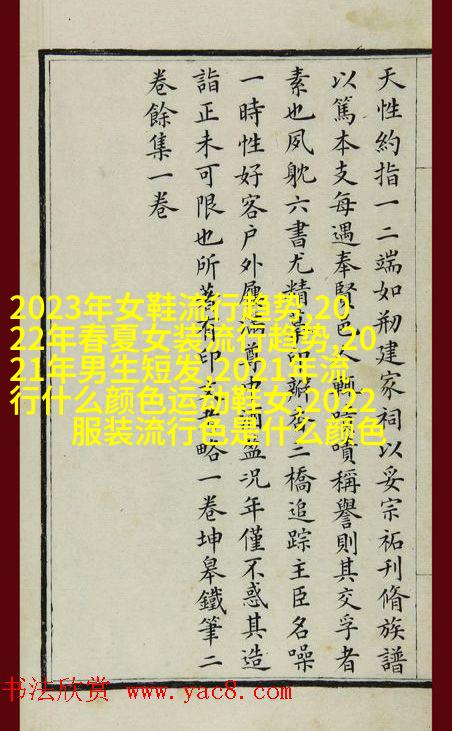 天性約指一二端如刱建家祠以妥宗祏刊脩族譜
以篤本支每遇奉賢邑人嘖稱譽則其交孚者
素也夙躭六書尤精印二橋追踪主臣名噪
一時性好客户外屨盈況年僅不惑其造
詣正未可限也所有印略一卷坤皋鐵筆二
卷餘集一卷
2023年女鞋流行趋势,20
22年春夏女装流行趋势,20
21年男生短发,2021年流
行什么颜色运动鞋女,2022
服装流行色是什么颜色
书法欣赏 www.yac8.com